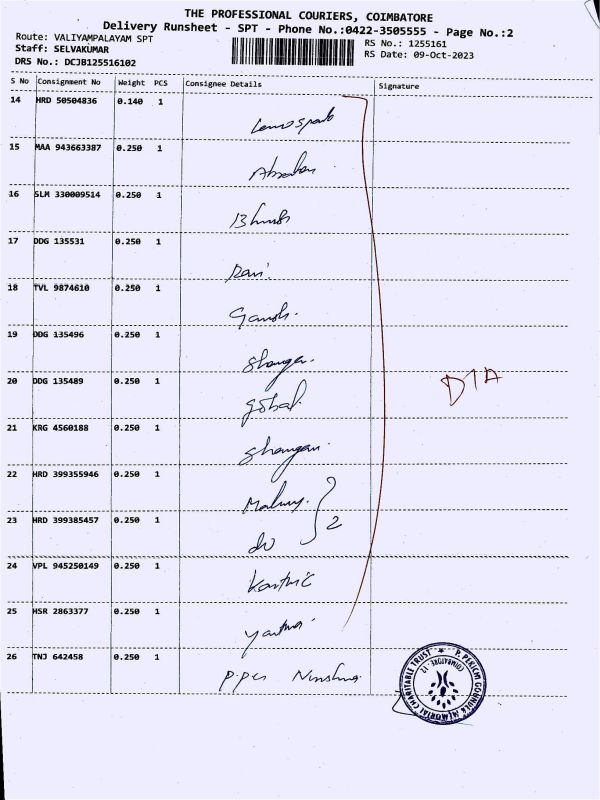 THE PROFESSIONAL COURIERS, COIMBATORE
Delivery Runsheet - SPT - Phone No.:0422-3505555 - Page No.:2
Route: VALIYAMPALAYAM SPT
RS No.: 1255161
Staff: SELVAKUMAR
RS Date: 09-Oct-2023
DRS No.: DCJB125516102
S No Consignment No Weight PCS Consignee Details Signature
14 HRD 50504836 0.140 1
15 MAA 943663387 0.250 1
16 SLM 330009514 0.250 1
17 DDG 135531 0.250 1
Ravi
18 TVL 9874610 0.250 1
Ganesh.
19 DDG 135496 0.250 1
20 DDG 135489 0.250 1
gobal
21 KRG 4560188 0.250 1
22 HRD 399355946 0.250 1
23 HRD 399385457 0.250 1
2
do
24 VPL 945250149 0.250 1
Karthic
25 HSR 2863377 0.250 1
26 TNJ 642458 0.250 1
COIMBATORE
MEMORIAL CHARITABLE TRUST